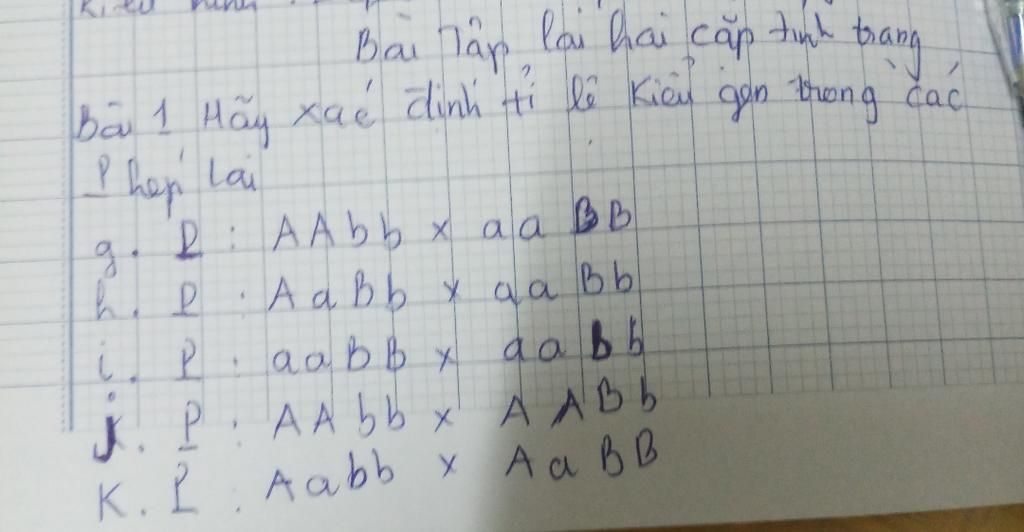 Bài Tập lai hai cặp tính trạng
Bài 1 Hãy xác định tỉ lệ kiểu gen trong các
Phép lai
g. P : AAbb x aaBB
h. P : AaBb x aaBb
i. P : aaBB x aabb
j. P : AAbb x AABb
K. P : Aabb x AaBB